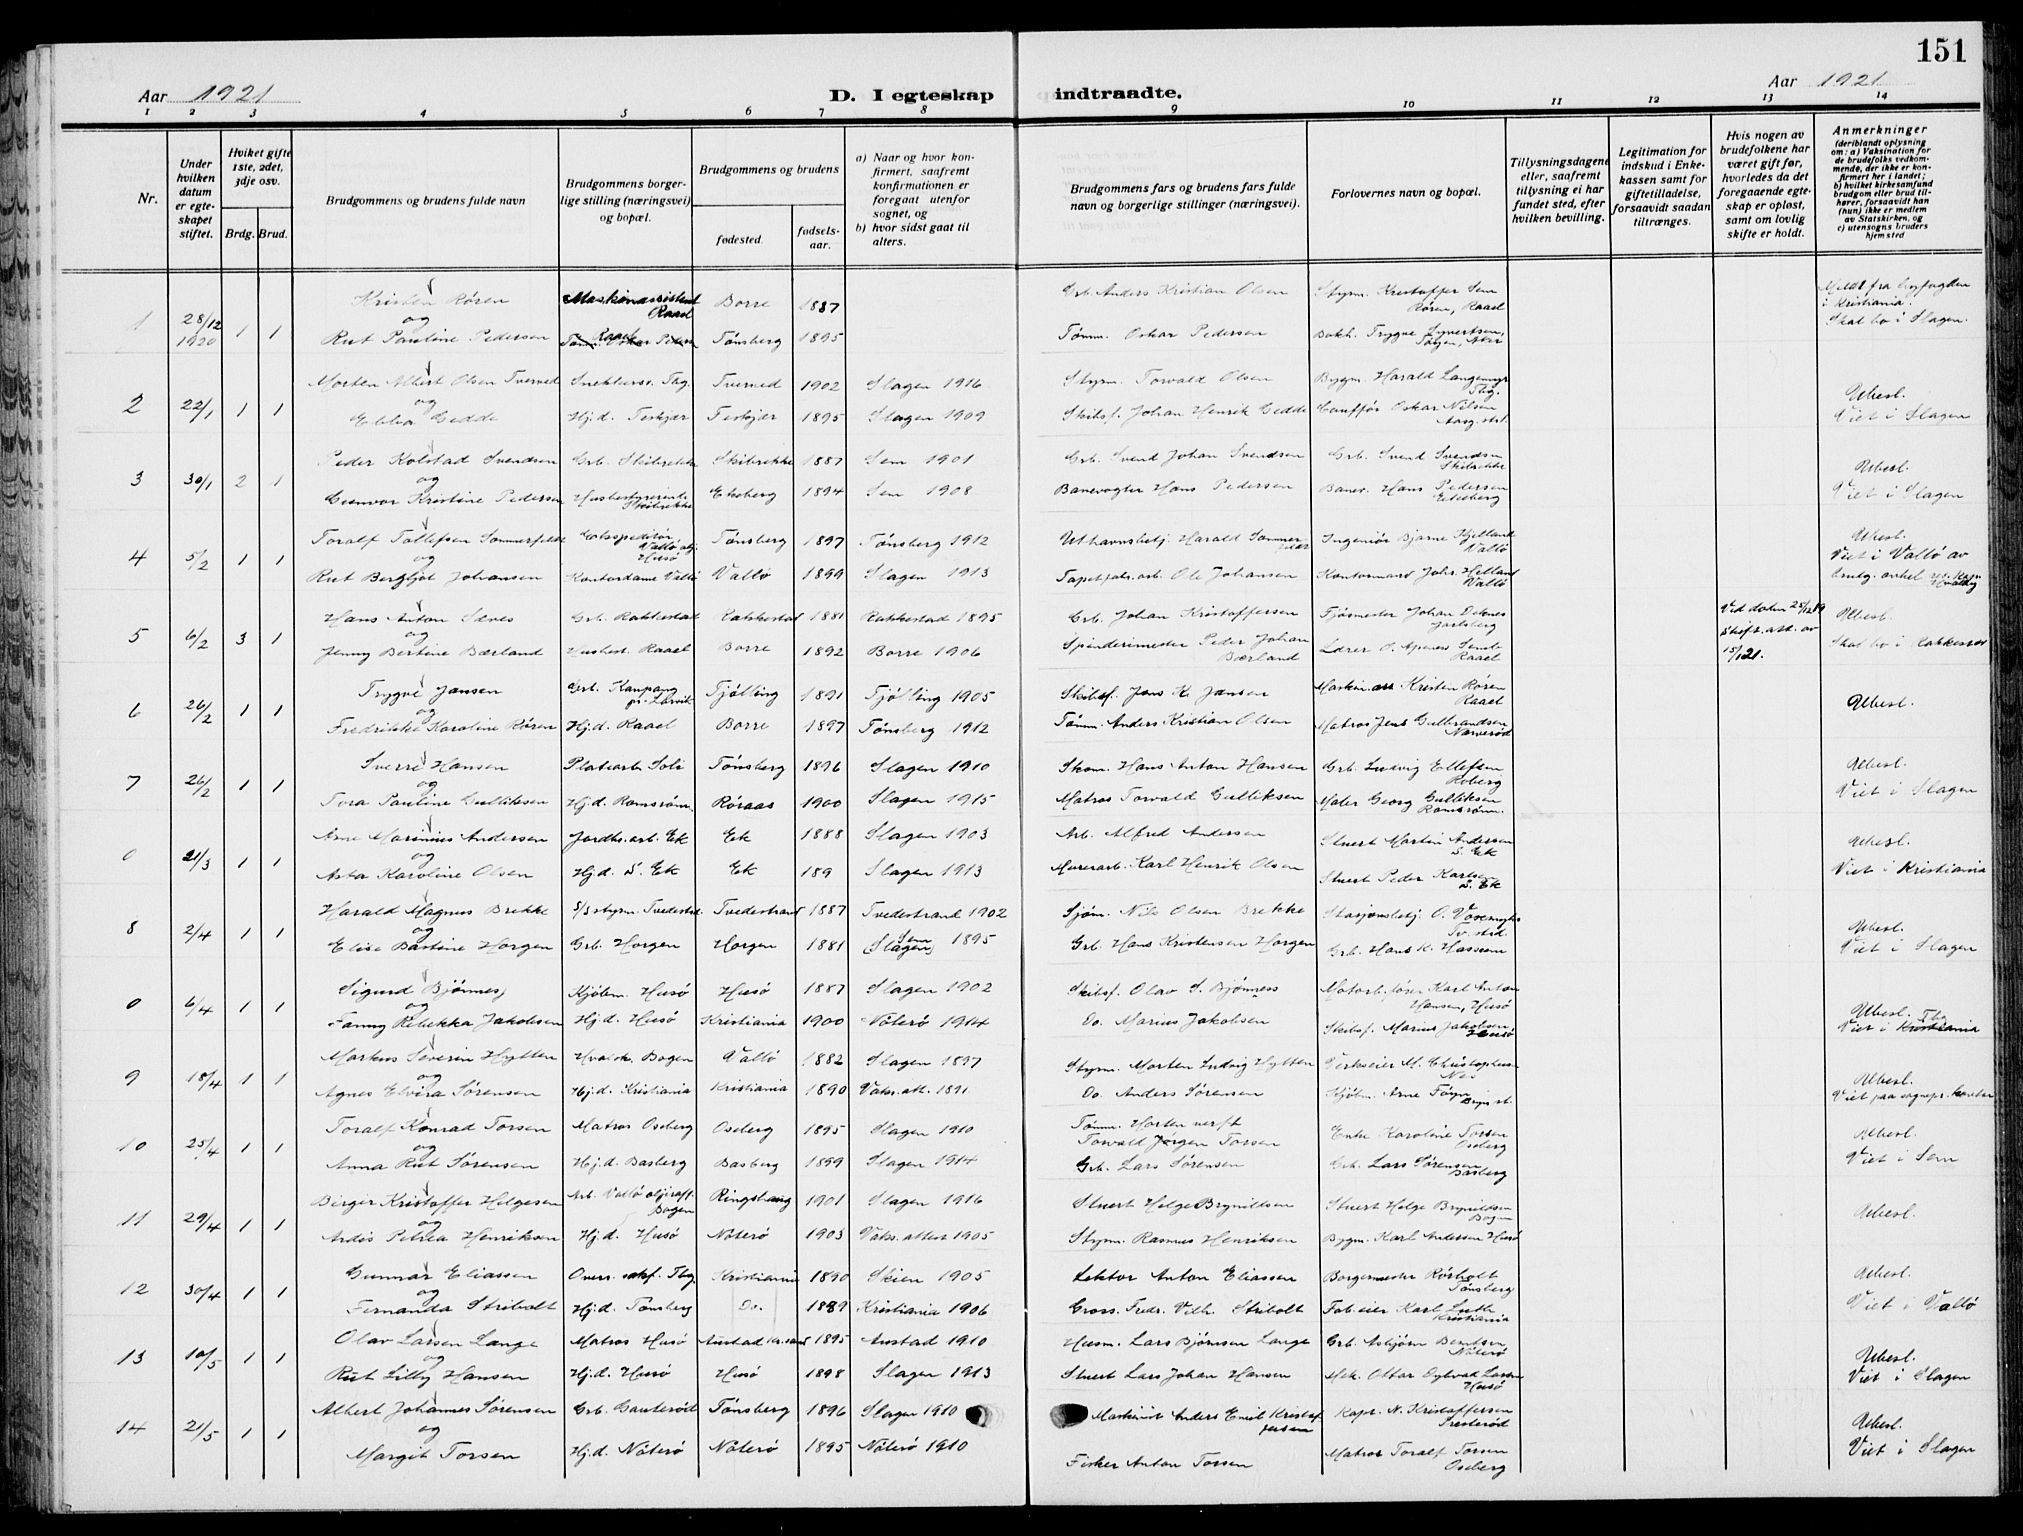 151
Aar 1921
D. I egteskap indtraadte.
Aar 1921
1 2 3 4 5 6 7 8 9 10 11 12 13 14
Nr.
Under hvilken datum er egteskapet stiftet.
Hviket gifte 1ste, 2det, 3dje osv.
Brdg. Brud.
Brudgommens og brudens fulde navn
Brudgommens borgerlige stilling (næringsvei) og bopæl.
Brudgommens og brudens
fødested. fødselsaar.
a) Naar og hvor konfirmert, saafremt konfirmationen er foregaat utenfor sognet, og
b) hvor sidst gaat til alters.
Brudgommens fars og brudens fars fulde navn og borgerlige stillinger (næringsvei).
Forlovernes navn og bopæl.
Tillysningsdagene eller, saafremt tillysning ei har fundet sted, efter hvilken bevilling.
Legitimation for indskud i Enkekassen samt for giftetilladelse, forsaavidt saadan tiltrænges.
Hvis nogen av brudefolkene har været gift før, hvorledes da det foregaaende egteskap er opløst, samt om lovlig skifte er holdt.
Anmerkninger (deriblandt oplysning om: a) Vaksination for de brudefolks vedkommende, der ikke er konfirmert her i landet; b) hvilket kirkesamfund brudgom eller brud tilhører, forsaavidt han (hun) ikke er medlem av Statskirken, og c) utensogns bruders hjemsted
1 28/12 1920 1 1 Kristen Røren Maskinassistent Raael Borre 1887 Grb. Anders Kristian Olsen Styrm. Kristoffer Sem Røren, Raael Meldt fra byfogden i Kristiania.
og
Rut Pauline Pedersen Raael Tømm. Oskar Pedersen Tønsberg 1895 Tømm. Oskar Pedersen Bokh. Trygve Syvertsen, Skal bo i Slagen.
2 22/1 1 1 Morten Albert Olsen Tverved Snekkersv. Tbg. Tverved 1902 Slagen 1916 Styrm. Torvald Olsen Bygm. Harald Langemyr Tbg. Ubesl.
og
Ebba Gedde Hj.d. Teskjær Teskjær 1895 Slagen 1909 Skibsf. Johan Henrik Gedde Cauffør Oskar Nilsen Viet i Slagen
3 30/1 2 1 Peder Kolstad Svendsen Grb. Skibrekke Skibrekke 1887 Sem 1901 Grb. Svend Johan Svendsen Grb. Svend Svendsen Skibrekke Ubesl.
og
Gunvor Kristine Pedersen Husbestyrerinde Skibrekke Ekeberg 1894 Sem 1908 Banevogter Hans Pedersen Banev. Hans Pedersen Ekeberg Viet i Slagen
4 5/2 1 1 Toralf Tollefsen Sommerfeldt Ekspeditør Vallø olj. Husø Tønsberg 1897 Tønsberg 1912 Harald Sommerfeldt Ingeniør Bjarne Hjelland Vallø Ubesl.
og
Rut Bergljot Johansen Kontordame Vallø Vallø 1899 Slagen 1913 Tapetfabr.arb. Ole Johansen Kontormand Johs. Helland Vallø Viet i Vallø av brudg. onkel
5 6/2 3 1 Hans Anton Sæves Grb. Rakkestad Rakkestad 1881 Rakkestad 1895 Grb. Johan Kristoffersen Fjøsmester Johan Deknes Jarlsberg Ved døden 25/12 19 Ubesl.
og
Jenny Bertine Bærland Husbest. Raael Borre 1892 Borre 1906 Spinderimester Peder Johan Bærland Lærer O. Raael Skift. att. av 15/1 21. Skal bo i Rakkestad
6 26/2 1 1 Trygve Jansen Grb. Kaupang pr. Larvik Tjølling 1891 Tjølling 1905 Skibsf. Jens K. Jansen Maskin.ass Kristen Røren Raael Ubesl.
og
Fredrikke Karoline Røren Hj.d. Raael Borre 1897 Tønsberg 1912 Tømm. Anders Kristian Olsen Matros Jens Gulbrandsen Narverød
7 26/2 1 1 Sverre Hansen Platearb. Soli Tønsberg 1896 Slagen 1910 Skom. Hans Anton Hansen Grb. Ludvig Ellefsen Roberg Ubesl.
og
Tora Pauline Gulliksen Hj.d. Romsrøm. Røraas 1900 Slagen 1915 Matros Torvald Gulliksen Maler Georg Gulliksen Romsrøm. Viet i Slagen
0 21/3 1 1 Arne Marinius Andersen Jordbr.arb. Ek Ek 1888 Slagen 1903 Arb. Alfred Andersen Stuert Martin Andersen S. Ek Ubesl.
og
Asta Karoline Olsen Hj.d. S. Ek Ek 189 Slagen 1913 Murerarb. Karl Henrik Olsen Stuert Peder Karlsen S. Ek Viet i Kristiania
8 2/4 1 1 Harald Magnus Brekke S/S styrm. Tvedestrd. Tvedestrand 1887 Tvedestrand 1902 Sjøm. Nils Olsen Brekke Stasjonsbetj. O. Tv. strd. Ubesl.
og
Elise Bastine Horgen Grb. Horgen Horgen 1881 Sem (Slagen) 1895 Grb. Hans Kristensen Horgen Grb. Hans K. Hassum Viet i Slagen
0 6/4 1 1 Sigurd Bjønnes Kjøbm. Husø Husø 1887 Slagen 1902 Skibsf. Olav S. Bjønness Motorb.fører Karl Anton Hansen, Husø Ubesl.
og
Fanny Rebekka Jakobsen Hj.d. Husø Kristiania 1900 Nøterø 1914 Do. Marius Jakobsen Skibsf. Marius Jakobsen Husø Viet i Kristiania Tbg
9 18/4 1 1 Markus Severin Hytten Hvalsk. Bogen Vallø 1882 Slagen 1897 Styrm. Morten Ludvig Hytten Verkseier M. Christophersen Nes Ubesl.
og
Agnes Elvira Sørensen Hj.d. Kristiania Kristiania 1890 Vaks. att. 1891 Do. Anders Sørensen Kjøbm. Arne Føyn Viet paa sognepr. kontor
10 25/4 1 1 Toralf Konrad Torsen Matros Oseberg Oseberg 1895 Slagen 1910 Tømm. Horten verft Torvald Jørgen Torsen Enke Karoline Torsen Oseberg Ubesl.
og
Anna Rut Sørensen Hj.d. Basberg Basberg 1899 Slagen 1914 Grb. Lars Sørensen Grb. Lars Sørensen Basberg Viet i Sem
11 29/4 1 1 Birger Kristoffer Helgesen Arb. Vallø oljeraff. Bogen Ringshaug 1901 Slagen 1916 Stuert Helge Brynildsen Stuert Helge Brynildsen Bogen Ubesl.
og
Ardis Petrea Henriksen Hj.d. Husø Nøterø 1903 Vaks. attest 1905 Styrm. Rasmus Henriksen Bygm. Karl Andersen Husø
12 30/4 1 1 Gunnar Eliassen Overr. sakf. Tbg. Kristiania 1890 Skien 1905 Lektor Anton Eliassen Borgemester Rørholt Tønsberg Ubesl.
og
Fernanda Stribolt Hj.d. Tønsberg Do. 1889 Kristiania 1906 Gross. Fredr. Vilh. Stribolt Fab.eier Karl Luth Kristiania Viet i Vallø
13 10/5 1 1 Olav Larsen Lange Matros Husø Austad Kr.sand 1895 Austad 1910 Husm. Lars Bjørnsen Lange Grb. Asbjørn Berntsen Nøterø Ubesl.
og
Rut Lilly Hansen Hj.d. Husø Husø 1898 Slagen 1913 Stuert Lars Johan Hansen Mek. Ottar Sylvad Larsen Husø Viet i Slagen
14 21/5 1 1 Albert Johannes Sørensen Grb. Gauterød Tønsberg 1896 Slagen 1910 Maskinist Anders Emil Kristoffersen Kapt. N. Kristoffersen Presterød Ubesl.
og
Margit Torsen Hj.d. Nøterø Nøterø 1895 Nøterø 1910 Fisker Anton Torsen Matros Toralf Torsen Oseberg Viet i Slagen